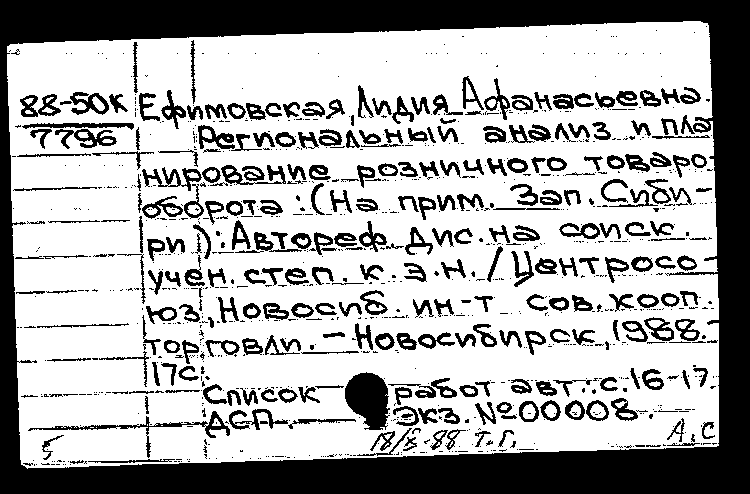 88-50К Ефимовская, Лидия Афанасьевна.
7796 Региональный анализ и пла
нирование розничного товаро-
оборота : (На прим. Зап. Сиби-
ри) : Автореф. дис. на соиск.
учен. степ. к. э. н. / Центросо-
юз, Новосиб. ин-т сов. кооп.
торговли. - Новосибирск, 1988. -
17с.
Список работ авт.: с. 16-17.
ДСП. - Экз. №00008.
5 т. г. А. С